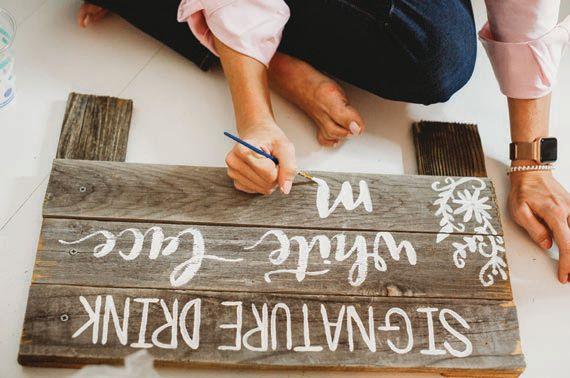 SIGNATURE DRINK
white lace
m